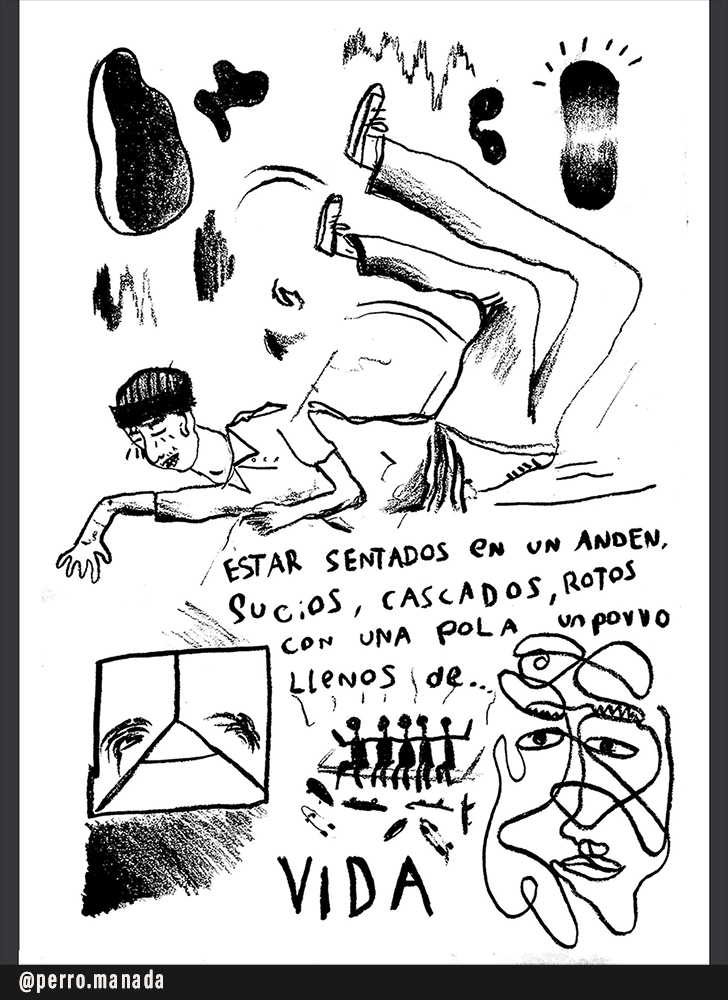 ESTAR SENTADOS eN UN ANDEN,
SUCiOS, CASCADOS, ROTOS
CON UNA POLA un porro
LLeNOS de...
VIDA
@perro.manada